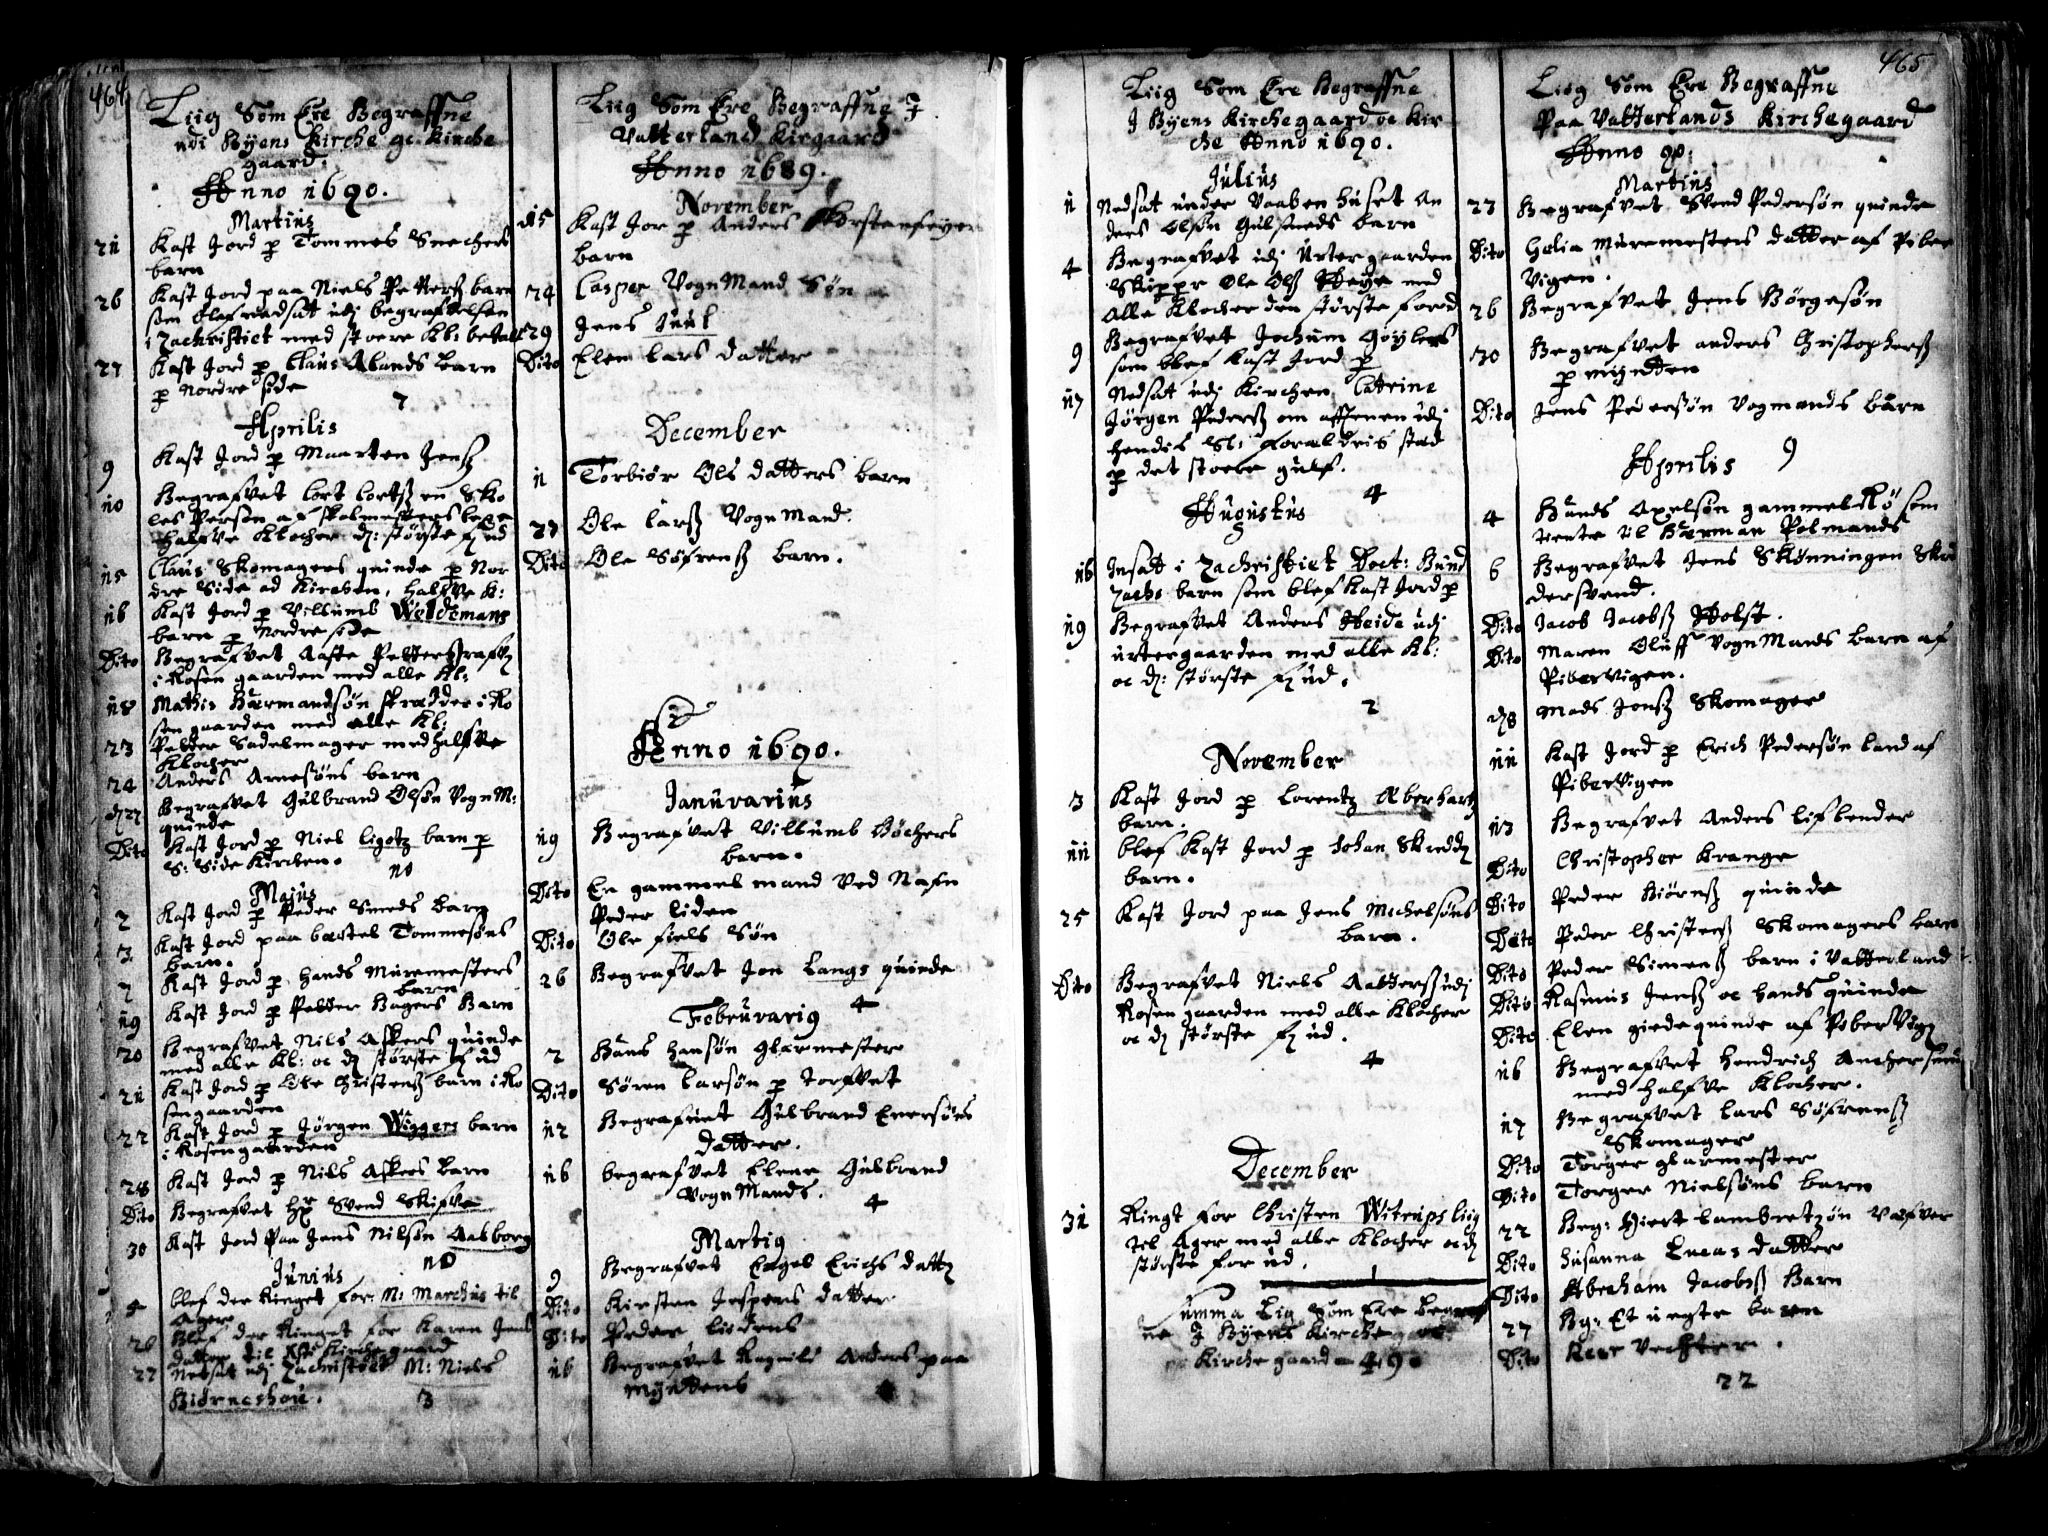 464
Liig Som Ere Begraffne
udi Byens Kirche oc Kirche
gaard.
Anno 1690.
Martius
21 Kast Jord p Tommes Snechers
barn
26 Kast Jord paa Niels Petters barn
som blef nedsat udj begrafvelsen
i Zachristiet med stoere Kl: betalt
27 Kast Jord p Claus Abands barn
p Nordre side
7
Aprilis
9 Kast Jord p Maarten Jenss
10 Begrafvet Cort Cortss en Sko
les Person af skolmesters lege
halfve Klocher dj: største fj ud
15 Claus Skomagers quinde p Nor
dre Side ad Kirchen, halfve K:
16 Kast Jord p Villumb Weldemans
barn p Nordre side
Dito Begrafvet Aaste Petterss
i Rosengaarden med alle Kl:
18 Mathis Hermandsøn skredder i Ro
sengaarden med alle Kl:
23 Petter Sadelmager med halfve
Klocher
24 Anders Arnesøns barn
27 Begrafvet Gulbrand Olsøn VognM:
quinde
Dito Kast Jord p Niel Ligotz barn p
S: Side Kirchen.
10
Majus
2 Kast Jord p Peder Smeds barn
3 Kast Jord paa bertel Tommesøns
barn.
7 Kast Jord p Hands Muremesters
barn
19 Kast Jord p Petter Bagers Barn
20 Begrafvet Nils Askers quinde
med alle Kl: oc dj største fj ud
21 Kast Jord p Ole Christenss barn i Ro
sengaarden
22 Kast Jord p Jørgen Wiggers barn
i Rosengaarden
28 Kast Jord p Nils Askers barn
Dito Begrafvet Hr Svend Skifve
30 Kast Jord Paa Jens Nilsøn Aalborg
10
Junius
4 blef der Ringet for M: Marchus til
Ager
26 Blef der Ringet for Karen Jens
datter til Kirchegaard
27 Nedsat udj Zachristiet M: Niels
Biørneshou.
3
Liig Som Ere Begraffne J
Vatterland Kirgaard
Anno 1689.
November
15 Kast Jor p Anders Skorstenfeyer
barn
24 Casper VognMand Søn
29 Jens Juul
Dito Elen Lars datter
December
11 Torbiør Ols datters barn
27 Ole Larss VognMand.
Dito Ole Søfrenss barn.
Anno 1690.
Januvarius
19 Begrafvet Villumb Bøchers
barn.
Dito En gammel mand Ved Nafn
Peder Liden
Dito Ole Fiels Søn
26 Begrafvet Jon Langs quinde
4
Februvarig
2 Hans Hansøn Glarmester
Dito Søren Larsøn p Torfvet
12 Begrafvet Gulbrand Enersøns
Datter.
16 begrafvet Elene Gulbrand
VognMands.
4
Martig
9 Begrafvet Engel Erichs datter
Dito Kirsten Jespers datter
Dito Peder Lidens
16 Begrafvet Ragnild Anders paa
Myntens
4
Liig Som Ere Begraffne
J Byens Kirchegaard oc Kir
che Anno 1690.
Julius
1 Nedsat under Vaaben huset An
ders Olsøn Gulsmeds barn
4 Begrafvet udj Urtergaarden
Skipper Ole Olss Heye med
alle Klocher den største ford
9 Begrafvet Jochum Gøylers
som blef kast Jord p
17 Nedsat udj Kirchen Catrine
Jørgen Pederss om afftenen udj
hendis Sl: foreldris sted
p det stoere gulf.
4
Augustus
16 Insatt i Zachristiet Doct: Bund
Zachs barn som blef Kast Jord p
19 Begrafvet Anders Heide udj
urtergaarden med alle Kl:
oc dj: største fj ud.
2
November
3 Kast Jord p Lorentz Aberhartz
barn.
11 blef Kast Jord p Johan Skredd
barn.
25 Kast Jord paa Jens Michelsøns
barn.
Dito Begrafvet Niels Aalterss udj
Rosengaarden med alle Klocher
oc dj største fj ud.
4
December
31 Ringt for Christen Witrups Liig
til Ager med alle Klocher oc dj
største for ud.
1
Summa Lig Som Ere Begraf
ne J Byens Kirche oc
Kirchegaard 49
465
Liig Som Ere Begraffne
Paa Vatterlands Kirchegaard
Anno 90.
Martius
23 Begrafvet Svend Pedersøn quinde
Dito Helia Muremesters datter af Piber
Vigen.
26 Begrafvet Jens Børgesøn
30 Begrafvet anders Christopherss
p myntten
Dito Jens Pedersøn Vogmands barn
9
Aprilis
4 Hands Axelsøn gammel Rø som
tiente til Herman Polmands
6 Begrafvet Jens Skønningen Skre
dersvend.
Dito Jacob Jacobss Holst.
Dito Maren Oluff VognMands barn af
Pibervigen.
8 Mads Jonss Skomager
11 Kast Jord p Erich Pedersøn Land af
Pibervigen
13 Begrafvet Anders Liflender
Dito Christopher Krange
Dito Peder Biørnss quinde
Dito Peder Christenss Skomagers barn
Dito Peder Simenss barn i Vatterland
Dito Rasmus Jenss oc hands quinde
Dito Elen giede quinde af PiberVigj
16 Begrafvet Hendrich Anchersen
med halfve Klocher.
17 Begrafvet Lars Søfrenss
Skomager
Dito Torger glarmester
Dito Torger Nielsøns barn
22 Beg: Giert Lambretzøn Vefver
Dito Susanna Lucas datter
Dito Abraham Jacobss Barn
27 Bg: Et uegte barn
Dito
22